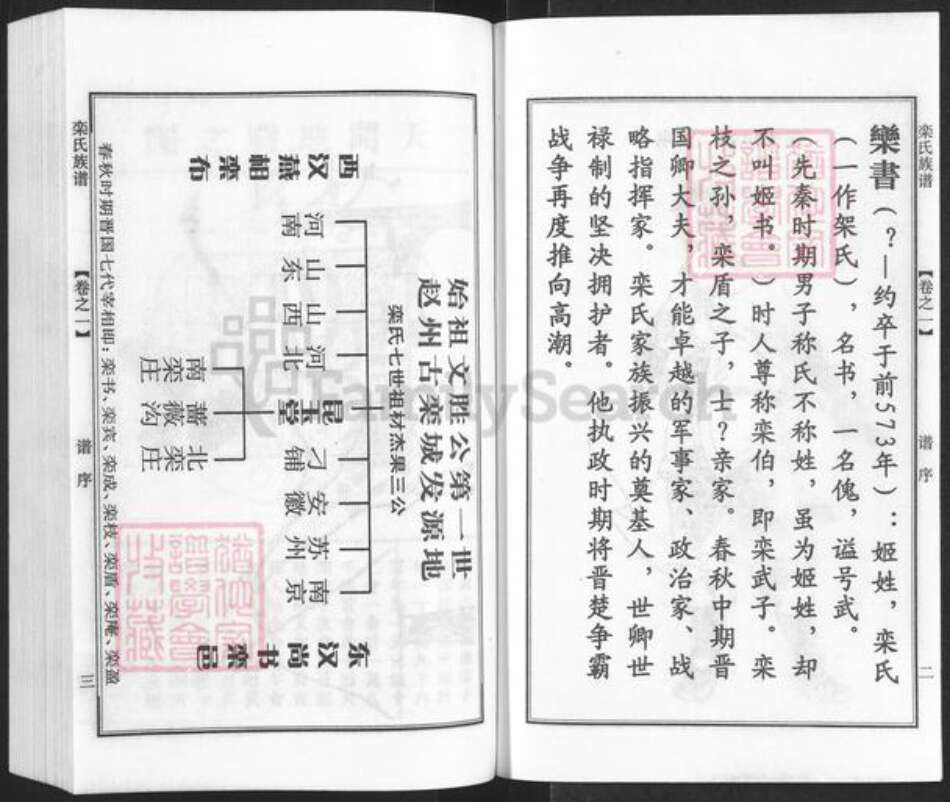 栾氏族谱
【卷之一】
谱序
二
欒書（？—约卒于前573年）：姬姓，栾氏
（一作架氏），名书，一名傀，谥号武。
（先秦时期男子称氏不称姓，虽为姬姓，却
不叫姬书。）时人尊称栾伯，即栾武子。栾
枝之孙，栾盾之子，士？亲家。春秋中期晋
国卿大夫，才能卓越的军事家、政治家、战
略指挥家。栾氏家族振兴的奠基人，世卿世
禄制的坚决拥护者。他执政时期将晋楚争霸
战争再度推向高潮。
始祖文胜公第一世
赵州古栾城发源地
栾氏七世祖材杰果三公
西汉燕相栾布
东汉尚书栾邑
河南
山东
山西
河北
昆玉堂
刁铺
安徽
苏州
南京
南栾庄
蔷薇沟
北栾庄
春秋时期晋国七代宰相即：栾书、栾宾、栾成、栾枝、栾盾、栾黡、栾盈
栾氏族谱
【卷之一】
谱序
三
FamilySearch